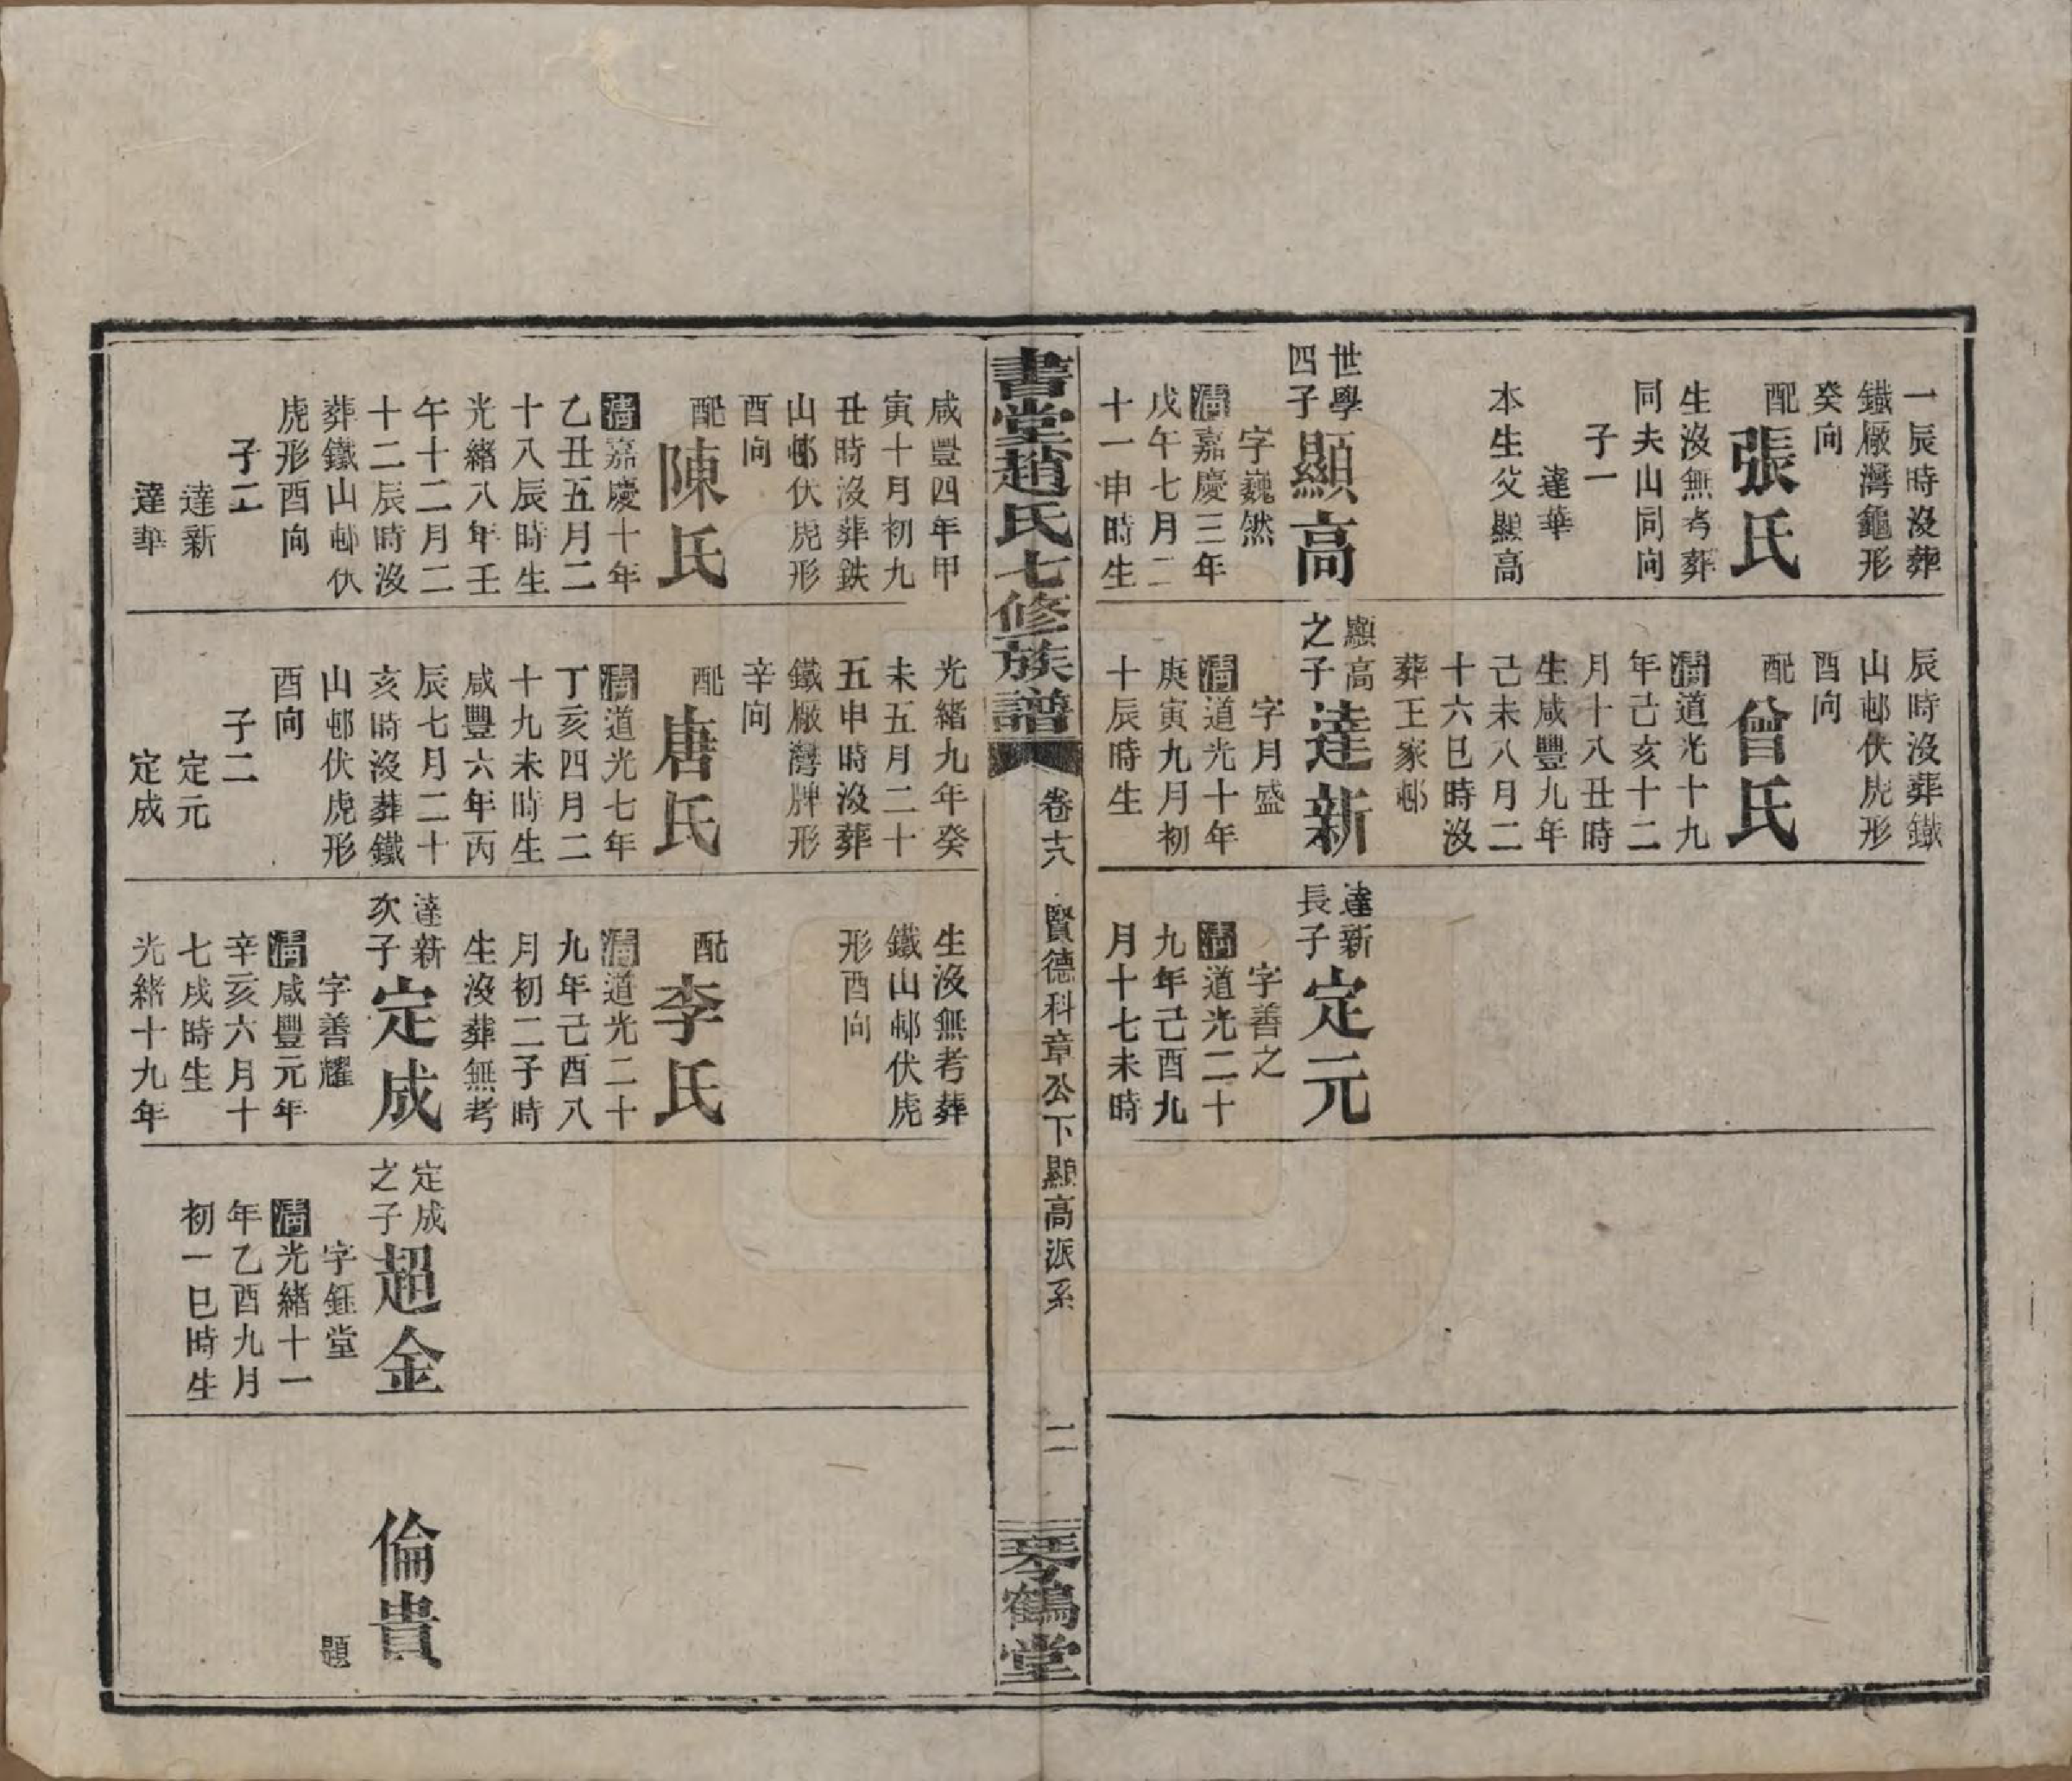 一辰時沒葬
鐵廠灣龜形
癸向
配張氏
生沒無考葬
同夫山同向
子一
達華
本生父顯高
世學
四子
顯高
字巍然
清嘉慶三年
戊午七月二
十一申時生
辰時沒葬鐵
山邨伏虎形
酉向
配曾氏
清道光十九
年己亥十二
月十八丑時
生咸豐九年
己未八月二
十六巳時沒
葬王家邨
顯高
之子
達新
字月盛
清道光十年
庚寅九月初
十辰時生
達新
長子
定元
字善之
清道光二十
九年己酉九
月十七未時
書堂趙氏七修族譜
卷十八
賢德科章公下顯高派系
二
琴鶴堂
咸豐四年甲
寅十月初九
丑時沒葬鉄
山邨伏虎形
酉向
配陳氏
清嘉慶十年
乙丑五月二
十八辰時生
光緒八年壬
午十二月二
十二辰時沒
葬鐵山邨伏
虎形酉向
子二
達新
達華
光緒九年癸
未五月二十
五申時沒葬
鐵廠灣牌形
辛向
配唐氏
清道光七年
丁亥四月二
十九未時生
咸豐六年丙
辰七月二十
亥時沒葬鐵
山邨伏虎形
酉向
子二
定元
定成
生沒無考葬
鐵山邨伏虎
形酉向
配李氏
清道光二十
九年己酉八
月初二子時
生沒葬無考
達新
次子
定成
字善耀
清咸豐元年
辛亥六月十
七戌時生
光緒十九年
定成
之子
超金
字鈺堂
清光緒十一
年乙酉九月
初一巳時生
倫貴
題